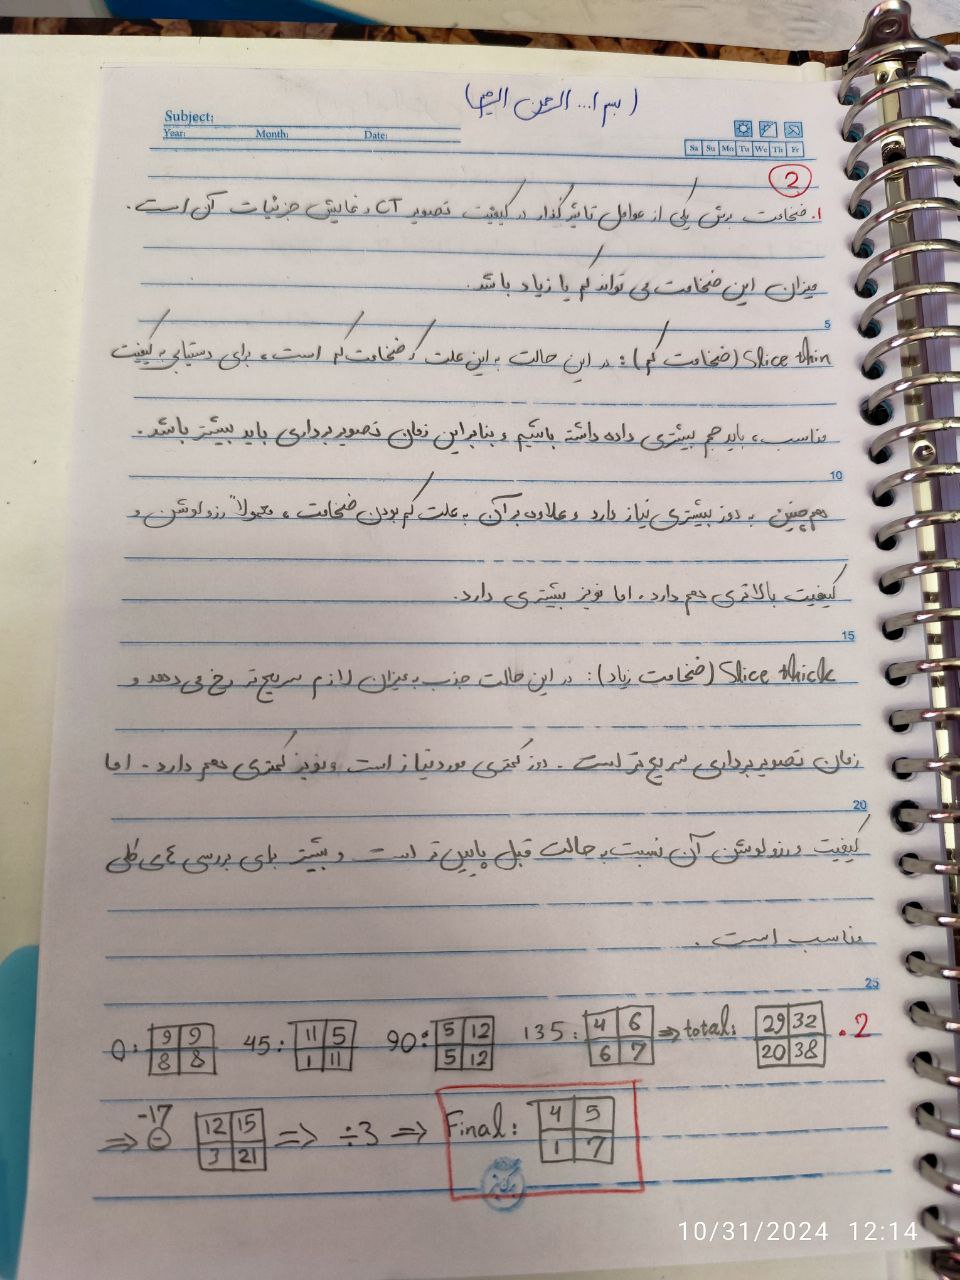 (بسم ا... الرحمن الرحیم)
Subject:
Year: Month: Date:
Sa Su Mo Tu We Th Fr
2
1. ضخامت برش یکی از عوامل تاثیرگذار در کیفیت تصویر CT و نمایش جزئیات آن است.
میزان این ضخامت می تواند کم یا زیاد باشد.
5
Slice thin (ضخامت کم): در این حالت به این علت که ضخامت کم است، برای دستیابی به کیفیت
مناسب، باید حجم بیشتری داده داشته باشیم و بنابراین زمان تصویربرداری باید بیشتر باشد.
10
همچنین به دوز بیشتری نیاز دارد و علاوه بر آن به علت کم بودن ضخامت، معمولاً رزولوشن و
کیفیت بالاتری هم دارد. اما نویز بیشتری دارد.
15
Slice thick (ضخامت زیاد): در این حالت جذب به میزان لازم سریع تر رخ می دهد و
زمان تصویربرداری سریع تر است. دوز کمتری مورد نیاز است و نویز کمتری هم دارد. اما
20
کیفیت و رزولوشن آن نسبت به حالت قبل پایین تر است و بیشتر برای بررسی های کلی
مناسب است.
25
0: 9 9 45: 11 5 90: 5 12 135: 4 6 ⇒ total: 29 32 .2
8 8 1 11 5 12 6 7 20 38
⇒ -17 ⊖ 12 15 ⇒ ÷3 ⇒ Final: 4 5
3 21 1 7
10/31/2024 12:14